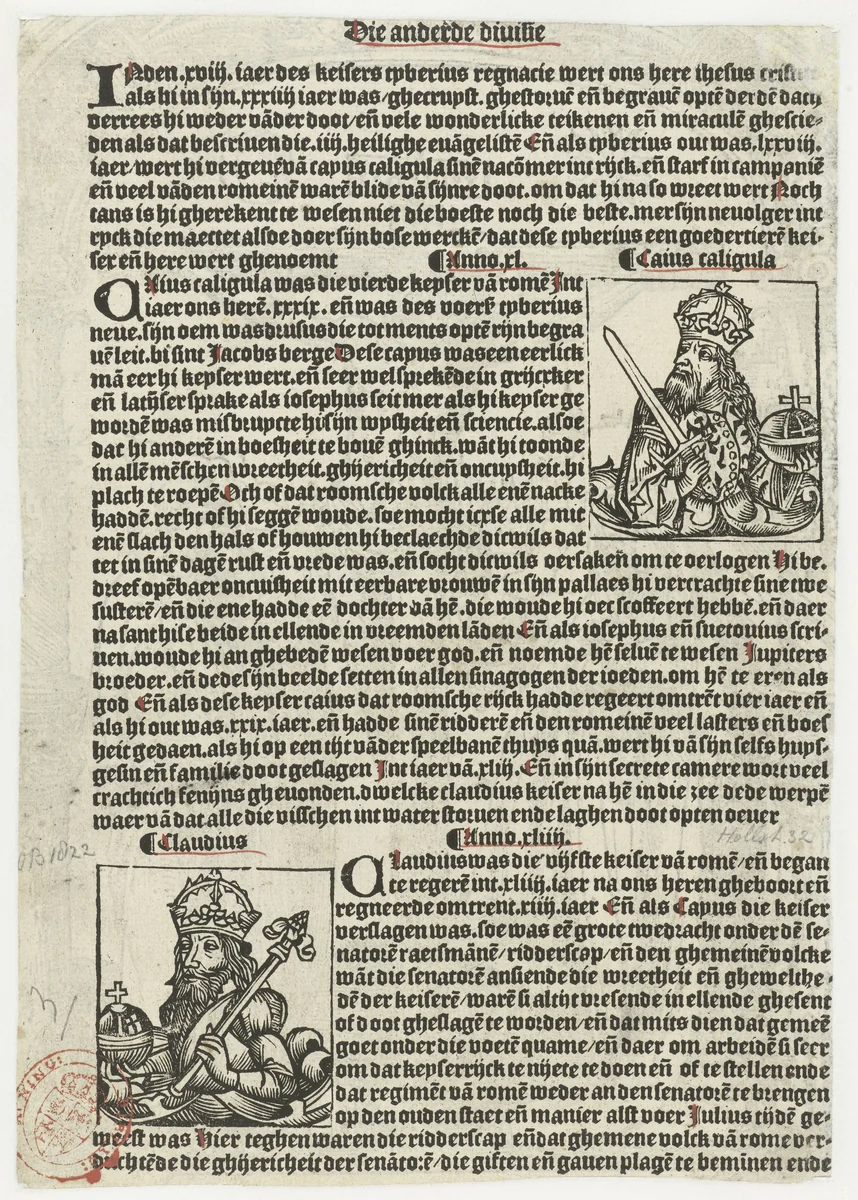 Die anderde divisie
INden.xviij.iaer des keisers tyberius regnacie wert ons here ihesus
als hi in sijn.xxxiiij iaer was/ghecruyst.ghestoruē eñ begrauē optē derdē dach
verrees hi weder vāder doot/eñ vele wonderlicke teikenen eñ miraculē ghescie-
den als dat bescriuen die.iiij.heilighe euāgelistē Eñ als tyberius out was.lxxviij.
iaer/wert hi vergeuē vā cayus caligula sinē nacōmer int rijck.eñ starf in campaniē
eñ veel vāden romeinē warē blide vā sijnre doot.om dat hi na so wreet wert Noch
tans is hi gherekent te wesen niet die boeste noch die beste.mer sijn neuolger int
ryck die maectet alsoe doer sijn bose werckē/dat dese tyberius een goedertierē kei-
ser eñ here wert ghenoemt ¶Anno.xl. ¶Caius caligula
CAius caligula was die vierde keyser vā romē Int
iaer ons herē.xxxix.eñ was des voerß tyberius
neue.sijn oem was drusus die tot ments optē rijn begra
uē leit.bi sint Jacobs berge Dese cayus was een eerlick
mā eer hi keyser wert.eñ seer wel sprekēde in grijcxker
eñ latijser sprake als iosephus seit mer als hi keyser ge
wordē was misbruycte hi sijn wysheit eñ sciencie.alsoe
dat hi anderē in boesheit te bouē ghinck.wāt hi toonde
in allē mēschen wreetheit.ghijericheit eñ oncuysheit.hi
plach te roepē Och of dat roomsche volck alle enē nacke
haddē.recht of hi seggē woude.soe mocht icxse alle mit
enē slach den hals of houwen hi beclaechde dicwils dat
tet in sinē dagē rust eñ vrede was.eñ socht dicwils oersakeñ om te oerlogen Hi be-
dreef opēbaer oncuisheit mit eerbare vrouwē in sijn pallaes hi vercrachte sine twe
susterē/eñ die ene hadde eē dochter vā hē.die woude hi oec scoffeert hebbē.eñ daer
na sant hise beide in ellende in vreemden lāden Eñ als iosephus eñ suetonius scri-
uen.woude hi an ghebedē wesen voer god.eñ noemde hē seluē te wesen Jupiters
broeder.eñ dede sijn beelde setten in allen sinagogen der ioeden.om hē te eren als
god Eñ als dese keyser caius dat roomsche rijck hadde regeert omtrēt vier iaer eñ
als hi out was.xxix.iaer.eñ hadde sinē ridderē eñ den romeinē veel lasters eñ boes
heit gedaen.als hi op een tijt vāder speelbanē thuys quā.wert hi vā sijn selfs huys-
gesin eñ familie doot geslagen Int iaer vā.xliij. Eñ in sijn secrete camere wort veel
crachtich fenijns gheuonden.dwelcke claudius keiser na hē in die zee dede werpē
waer vā dat alle die visschen int water storuen ende laghen doot opten oeuer
Hollst. 32
¶Claudius ¶Anno.xliiij.
OB 1822
CLaudius was die vijfste keiser vā romē/eñ began
te regerē int.xliiij.iaer na ons heren gheboort eñ
regneerde omtrent.xiiij.iaer Eñ als Cayus die keiser
verslagen was.soe was eē grote twedracht onder dē se-
natorē raetsmānē/ridderscap/eñ den ghemeinē volcke
wāt die senatorē ansiende die wreetheit eñ ghewelthe-
dē der keiserē/warē si altijt vresende in ellende ghesent
of doot gheslagē te worden/eñ dat mits dien dat gemeē
goet onder die voetē quame/eñ daer om arbeidē si seer
om dat keyserrijck te nijete te doen eñ of te stellen ende
dat regimēt vā romē weder an den senatorē te brengen
op den ouden staet eñ manier alst voer Julius tijdē ge-
weest was Hier teghen waren die ridderscap eñ dat ghemene volck vā rome ver-
duchtēde die ghijericheit der senatorē/die giften eñ gauen plagē te beminen ende